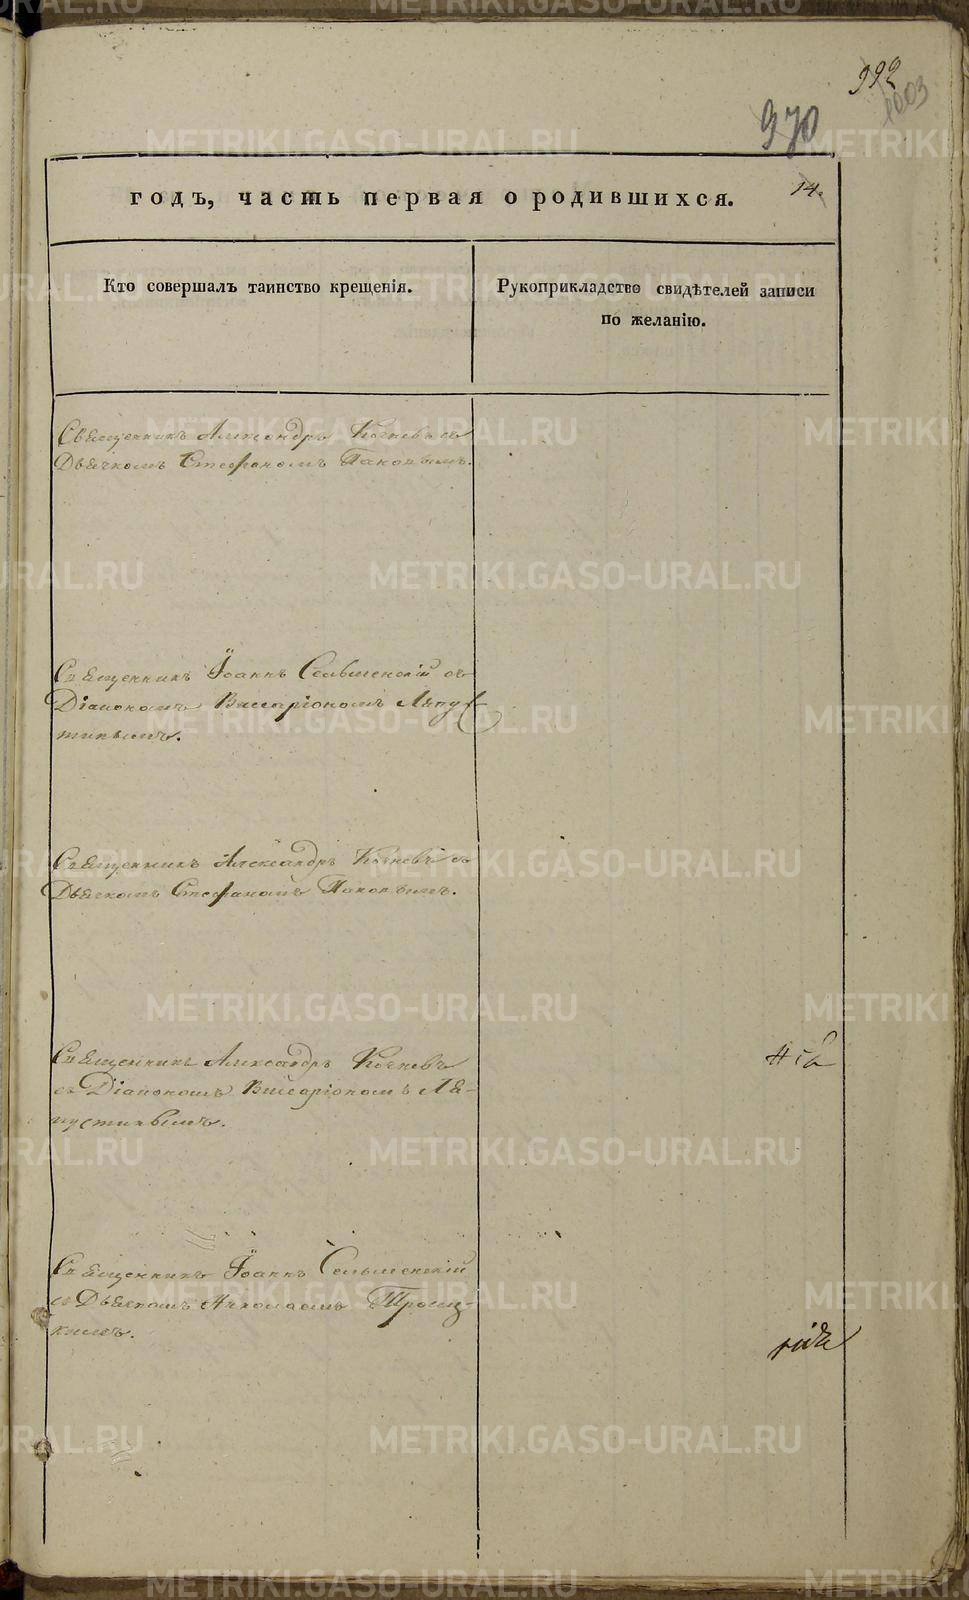 992
1003
970
14.
годъ, часть первая о родившихся.
Кто совершалъ таинство крещенія.
Рукоприкладство свидѣтелей записи
по желанію.
Священникъ Александръ Кочневъ съ
Дьячкомъ Стефаномъ
Священникъ Іоаннъ Сельменскій съ
Діакономъ Виссаріономъ Ляпус
тинымъ.
Священникъ Александръ Кочневъ съ
Дьячкомъ Стефаномъ
Священникъ Александръ Кочневъ
съ Діакономъ Виссаріономъ Ля-
пустинымъ.
Священникъ Іоаннъ Сельменскій
съ Дьячкомъ Троиц-
кимъ.
METRIKI.GASO-URAL.RU